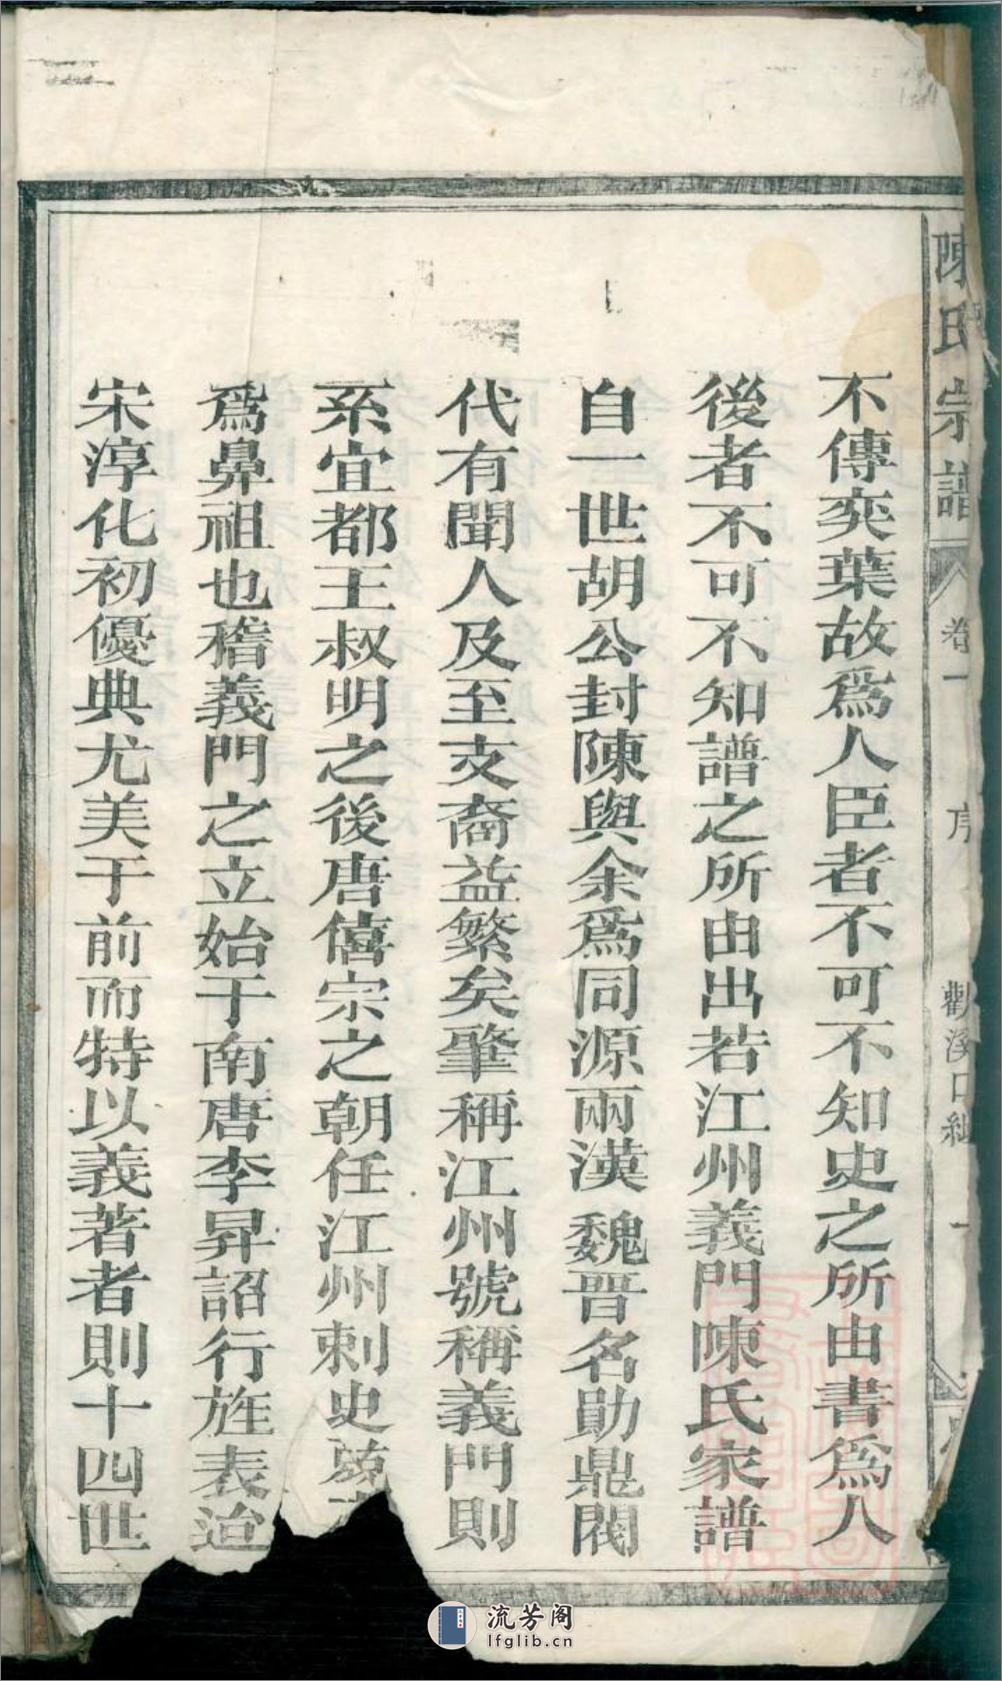 陳氏宗譜 卷一 序 觀溪口編 一
不傳奕葉故爲人臣者不可不知史之所由書爲人
後者不可不知譜之所由出若江州義門陳氏家譜
自一世胡公封陳與余爲同源兩漢魏晋名勛鼎閥
代有聞人及至支裔益繁矣肇稱江州號稱義門則
系宜都王叔明之後唐僖宗之朝任江州刺史
爲鼻祖也稽義門之立始于南唐李昇詔行旌表迨
宋淳化初優典尤美于前而特以義著者則十四世
流芳阁
lfglib.cn